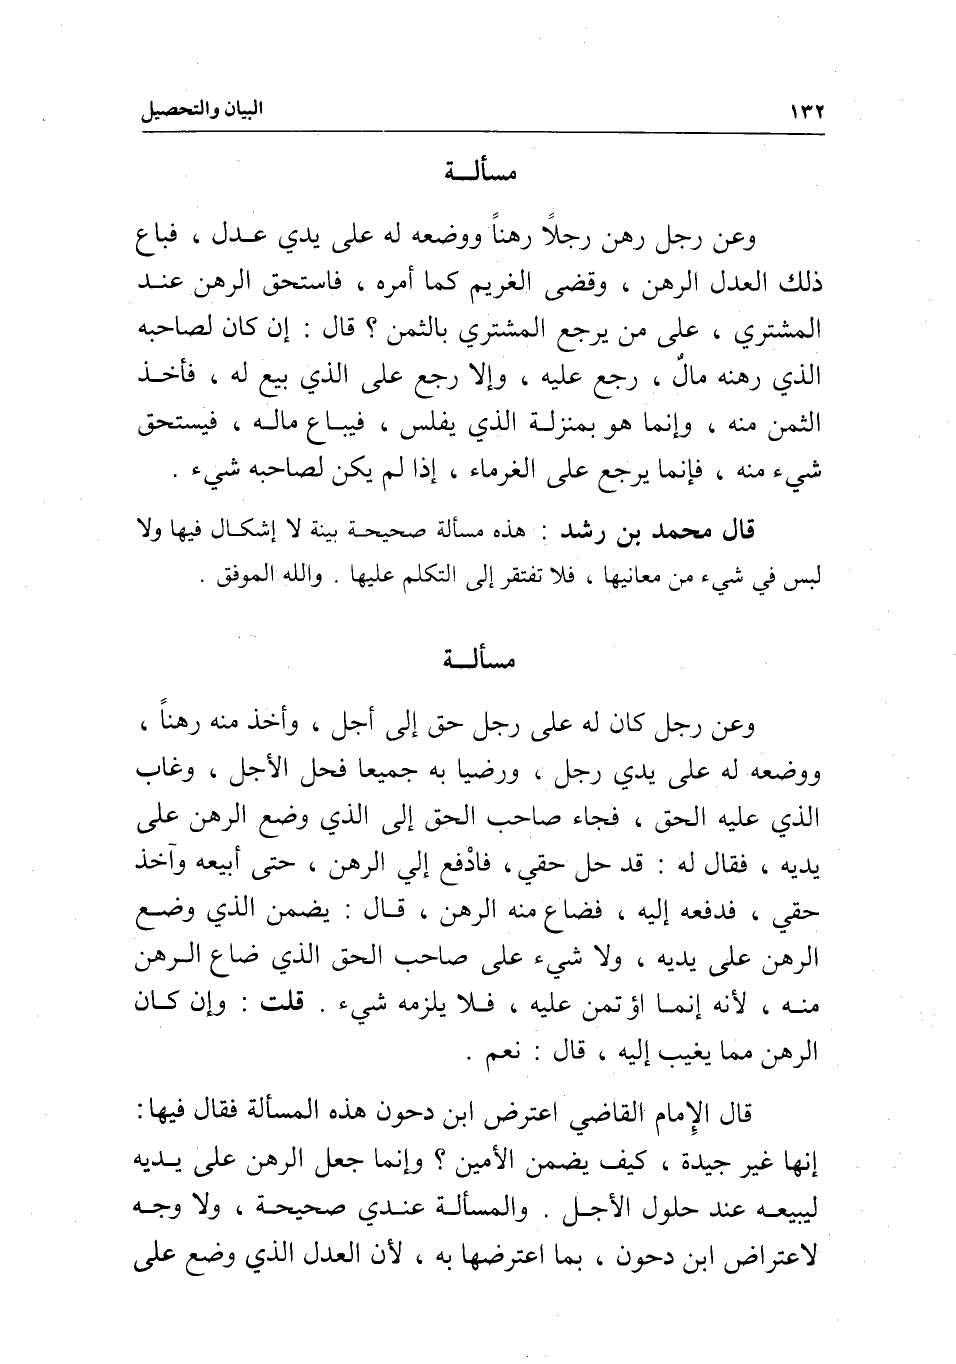 ١٣٢
البيان والتحصيل
مسألــة
وعن رجل رهن رجلاً رهناً ووضعه له على يدي عـدل ، فباع
ذلك العدل الرهن ، وقضى الغريم كما أمره ، فاستحق الرهن عنـد
المشتري ، على من يرجع المشتري بالثمن ؟ قال : إن كان لصاحبه
الذي رهنه مالٌ ، رجع عليه ، وإلا رجع على الذي بيع له ، فأخـذ
الثمن منه ، وإنما هو بمنزلـة الذي يفلس ، فيبـاع مالـه ، فيستحق
شيء منه ، فإنما يرجع على الغرماء ، إذا لم يكن لصاحبه شيء .
قال محمد بن رشد : هذه مسألة صحيحـة بينة لا إشكـال فيها ولا
لبس في شيء من معانيها ، فلا تفتقر إلى التكلم عليها . والله الموفق .
مسألــة
وعن رجل كان له على رجل حق إلى أجل ، وأخذ منه رهناً ،
ووضعه له على يدي رجل ، ورضيا به جميعا فحل الأجل ، وغاب
الذي عليه الحق ، فجاء صاحب الحق إلى الذي وضع الرهن على
يديه ، فقال له : قد حل حقي ، فادْفع إلي الرهن ، حتى أبيعه وآخذ
حقي ، فدفعه إليه ، فضاع منه الرهن ، قـال : يضمن الذي وضـع
الرهن على يديه ، ولا شيء على صاحب الحق الذي ضاع الـرهن
منـه ، لأنه إنمـا اؤتمن عليه ، فـلا يلزمه شيء . قلت : وإن كـان
الرهن مما يغيب إليه ، قال : نعم .
قال الإمام القاضي اعترض ابن دحون هذه المسألة فقال فيها :
إنها غير جيدة ، كيف يضمن الأمين ؟ وإنما جعل الرهن على يـديه
ليبيعـه عند حلول الأجـل . والمسألـة عنـدي صحيحـة ، ولا وجـه
لاعتراض ابن دحون ، بما اعترضها به ، لأن العدل الذي وضع على